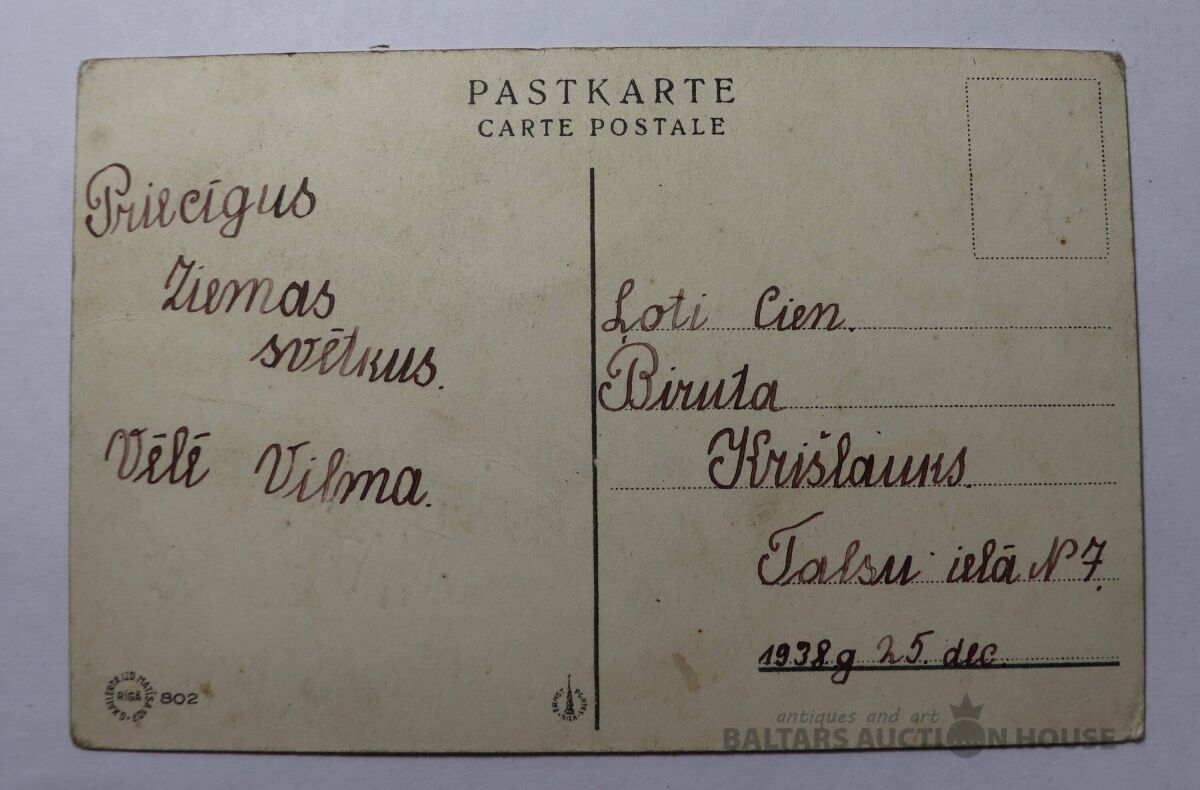 PASTKARTE
CARTE POSTALE
Priecīgus
Ziemas
svētkus.
Vēlē Vilma.
Ļoti Cien.
Biruta
Krišlauks.
Talsu ielā N 7.
1938g 25. dec.
G. KAILERTA IZD. MATĪSA 103
RĪGĀ
802
ERNST PLATES
RIGA
antiques and art
BALTARS AUCTION HOUSE